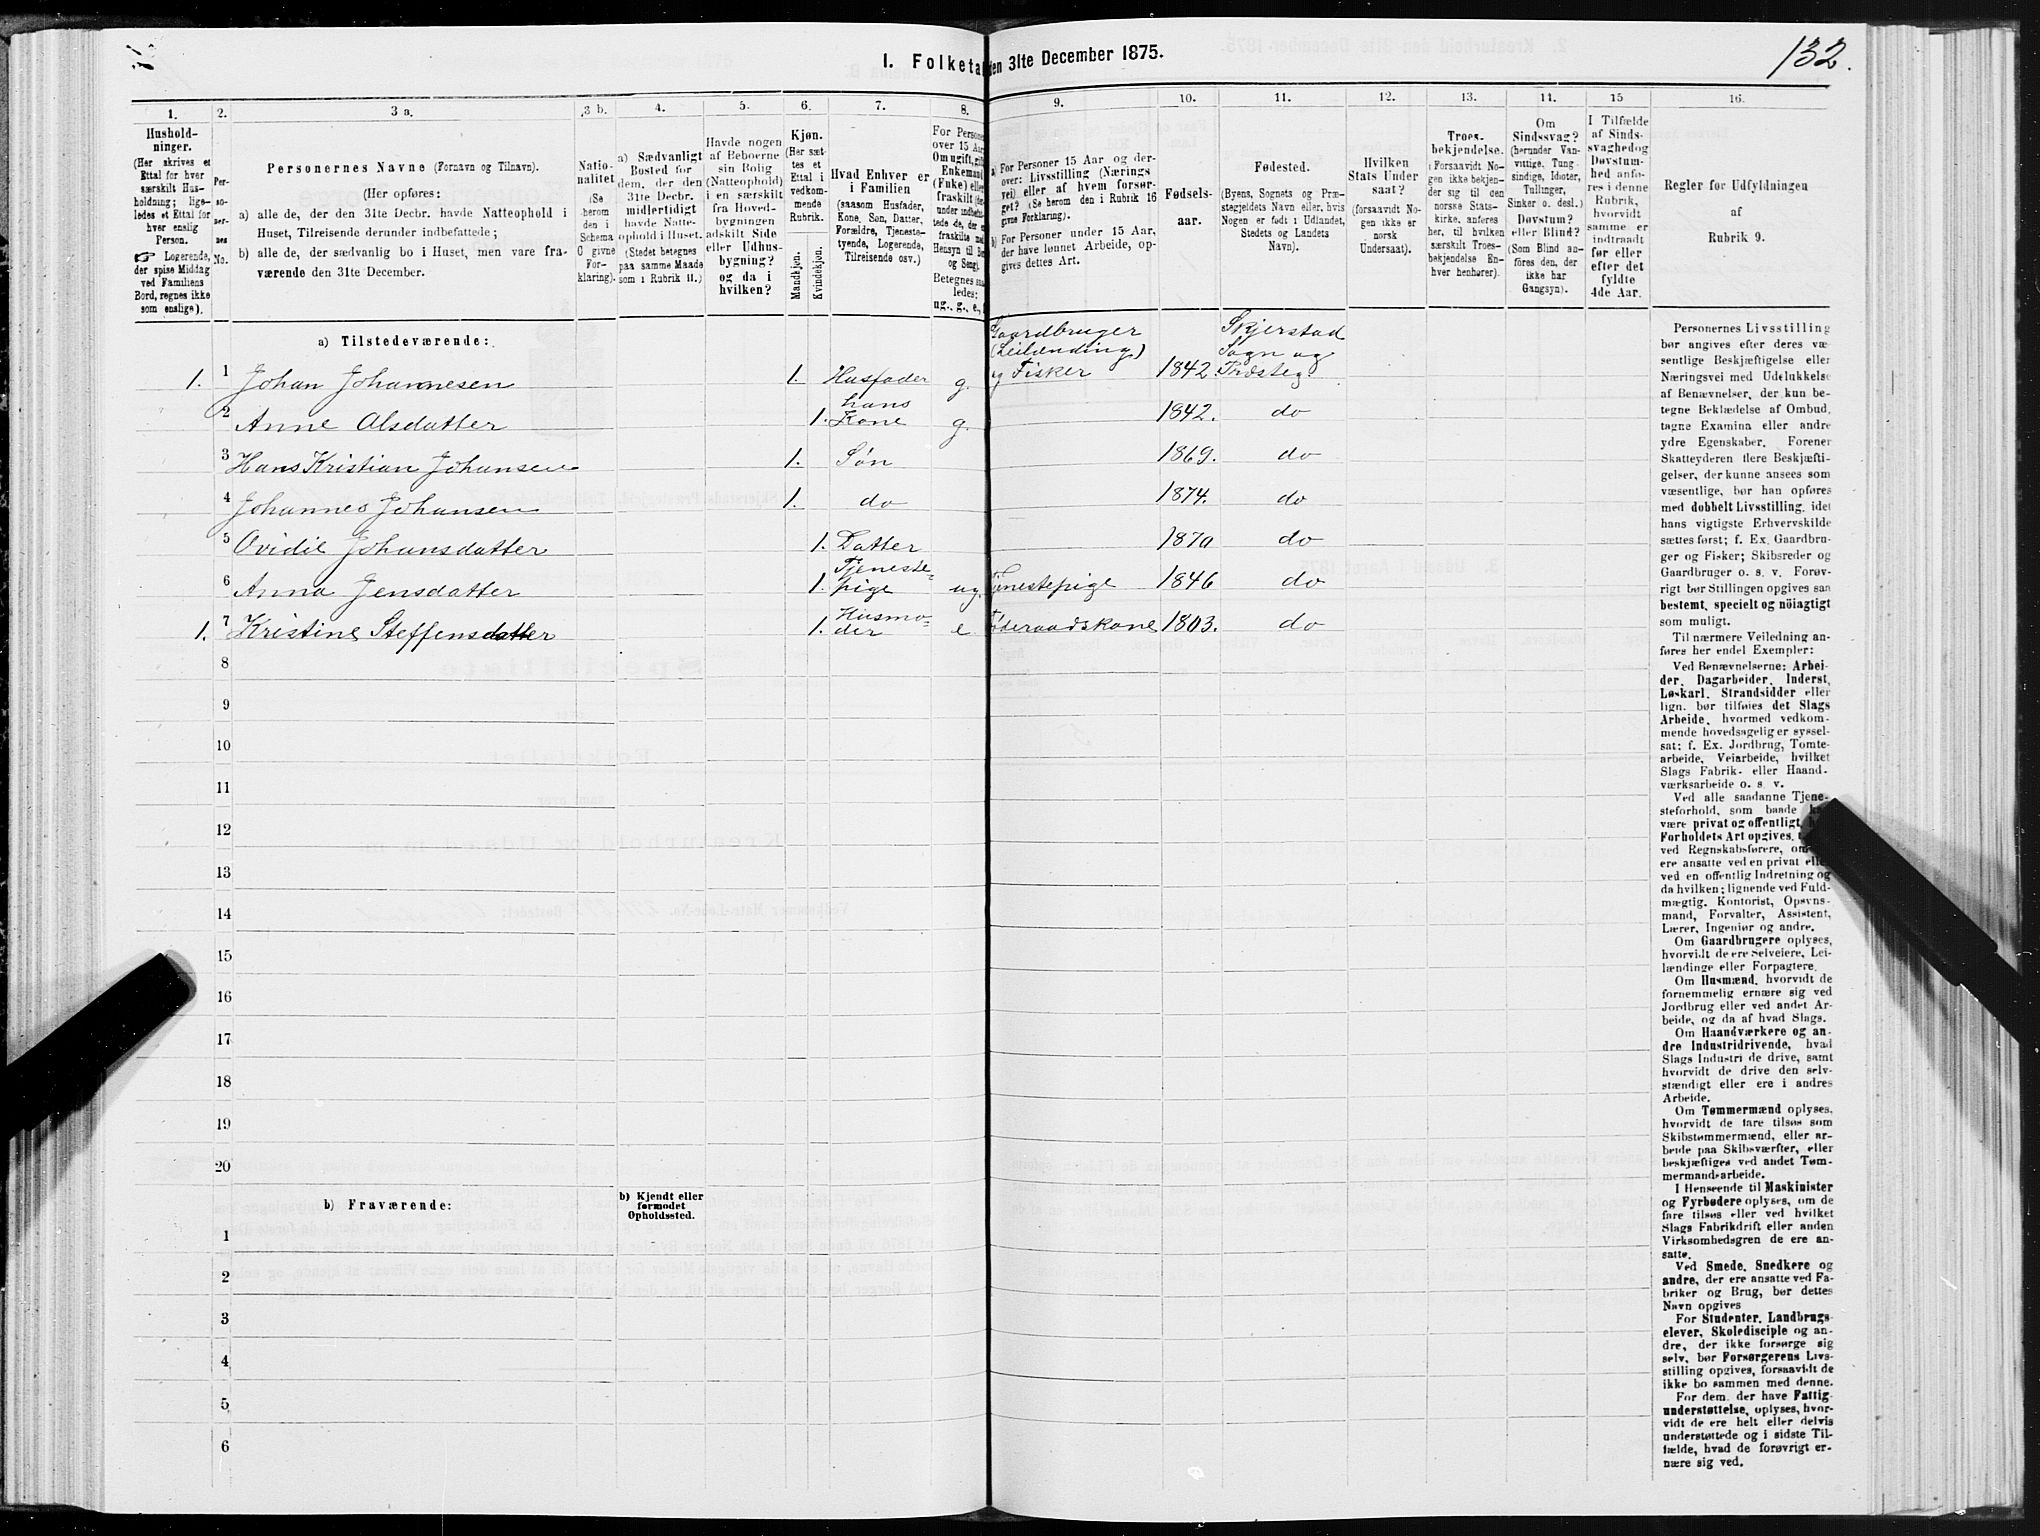 132.
I. Folketal den 31te December 1875.
1. 2. 3 a. 3 b. 4. 5. 6. 7. 8. 9. 10. 11. 12. 13. 14. 15 16.
Hushold-
ninger.
(Her skrives et
Ettal for hver
særskilt Hus-
holdning; lige-
ledes et Ettal for
hver enslig
Person.
☞ Logerende,
der spise Middag
ved Familiens
Bord, regnes ikke
som enslige).
Per-
so-
ner-
nes
No.
Personernes Navne (Fornavn og Tilnavn).
(Her opføres:
a) alle de, der den 31te Decbr. havde Natteophold i
Huset, Tilreisende derunder indbefattede;
b) alle de, der sædvanlig bo i Huset, men vare fra-
værende den 31te December.
Natio-
nalitet
(Se
herom
den i
Schema
C givne
For-
klaring).
a) Sædvanligt
Bosted for
dem, der den
31te Decbr.
midlertidigt
havde Natte-
ophold i Huset.
(Stedet betegnes
paa samme Maade
som i Rubrik 11.)
Havde nogen
af Beboerne
sin Bolig
(Natteophold)
i en særskilt
fra Hoved-
bygningen
adskilt Side
eller Udhus-
bygning?
og da i
hvilken?
Kjøn.
(Her sæt-
tes et
Ettal i
vedkom-
mende
Rubrik.
Mandkjøn.
Kvindekjøn.
Hvad Enhver er
i Familien
(saasom Husfader,
Kone, Søn, Datter,
Forældre, Tjeneste-
tyende, Logerende,
Tilreisende osv.)
For Personer
over 15 Aar:
Om ugift, gift,
Enkemand
(Enke) eller
fraskilt
Betegnes saa-
ledes:
ug., g., e.,
a) For Personer 15 Aar og der-
over: Livsstilling (Nærings
vei) eller af hvem forsør-
get? (Se herom den i Rubrik 16
givne Forklaring).
b) For Personer under 15 Aar,
der have lønnet Arbeide, op-
gives dettes Art.
Fødsels-
aar.
Fødested.
(Byens, Sognets og Præ-
stegjeldets Navn eller, hvis
Nogen er født i Udlandet,
Stedets og Landets
Navn).
Hvilken
Stats Under
saat?
(forsaavidt No-
gen ikke er
norsk
Undersaat).
Troes-
bekjendelse.
(Forsaavidt No-
gen ikke bekjen-
der sig til den
norske Stats-
kirke, anføres
her, til hvilken
særskilt Troes-
bekjendelse En-
hver henhører).
Om
Sindssvag?
(herunder Van-
vittige, Tung-
sindige, Idioter,
Tullinger,
Sinker o. desl.)
Døvstum?
eller Blind?
(Som Blind an-
føres den, der
ikke har
Gangsyn).
I Tilfælde
af Sinds-
svaghed og
Døvstum-
hed anfø-
res i denne
Rubrik,
hvorvidt
samme er
indtraadt
før eller
efter det
fyldte
4de Aar.
Regler for Udfyldningen
af
Rubrik 9.
a) Tilstedeværende:
1. 1 Johan Johannesen 1. Husfader g. Gaardbruger (Leilænding) og Fisker 1842 Skjerstad Sogn og Præsteg.
2 Anne Olsdatter 1. hans Kone g. 1842. do
3 Hans Kristian Johansen 1. Søn 1869. do
4 Johannes Johansen 1. do 1874. do
5 Ovidie Johansdatter 1. Datter 1870 do
6 Anna Jensdatter 1. Tjeneste-pige ug. Tjenestepige 1846 do
1. 7 Kristine Steffensdatter 1. Husmo-der e Føderaadskone 1803. do
8
9
10
11
12
13
14
15
16
17
18
19
20
b) Fraværende:
b) Kjendt eller
formodet
Opholdssted.
1
2
3
4
5
6
Personernes Livsstilling
bør angives efter deres væ-
sentlige Beskjæftigelse eller
Næringsvei med Udelukkelse
af Benævnelser, der kun be-
tegne Beklædelse af Ombud,
tagne Examina eller andre
ydre Egenskaber. Forener
Skatteyderen flere Beskjæfti-
gelser, der kunne ansees som
væsentlige, bør han opføres
med dobbelt Livsstilling, idet
hans vigtigste Erhvervskilde
sættes først; f. Ex. Gaardbru-
ger og Fisker; Skibsreder og
Gaardbruger o. s. v. Forøv-
rigt bør Stillingen opgives saa
bestemt, specielt og nöiagtigt
som muligt.
Til nærmere Veiledning an-
føres her endel Exempler:
Ved Benævnelserne: Arbei-
der, Dagarbeider, Inderst,
Løskarl, Strandsidder eller
lign. bør tilføies det Slags
Arbeide, hvormed vedkom-
mende hovedsagelig er syssel-
sat; f. Ex. Jordbrug, Tomte-
arbeide, Veiarbeide, hvilket
Slags Fabrik- eller Haand-
værksarbeide o. s. v.
Ved alle saadanne Tjene-
steforhold, som baade
være privat og offentligt,
Forholdets Art opgives,
ved Regnskabsførere, om
ere ansatte ved en privat eller
ved en offentlig Indretning og
da hvilken; lignende ved Fuld-
mægtig, Kontorist, Opsyns-
mand, Forvalter, Assistent,
Lærer, Ingeniør og andre.
Om Gaardbrugere oplyses,
hvorvidt de ere Selveiere, Lei-
lændinge eller Forpagtere.
Om Husmænd, hvorvidt de
fornemmelig ernære sig ved
Jordbrug eller ved andet Ar-
beide, og da af hvad Slags.
Om Haandværkere og an-
dre Industridrivende, hvad
Slags Industri de drive, samt
hvorvidt de drive den selv-
stændigt eller ere i andres
Arbeide.
Om Tømmermænd oplyses,
hvorvidt de fare tilsøs som
Skibstømmermænd, eller ar-
beide paa Skibsværfter, eller
beskjæftiges ved andet Tøm-
mermandsarbeide.
I Henseende til Maskinister
og Fyrbødere oplyses, om de
fare tilsøs eller ved hvilket
Slags Fabrikdrift eller anden
Virksomhedsgren de ere an-
satte.
Ved Smede, Snedkere og
andre, der ere ansatte ved Fa-
briker og Brug, bør dettes
Navn opgives
For Studenter, Landbrugs-
elever, Skoledisciple og an-
dre, der ikke forsørge sig
selv, bør Forsørgerens Livs-
stilling opgives, forsaavidt de
ikke bo sammen med denne.
For dem, der have Fattig-
understøttelse, oplyses, hvor-
vidt de ere helt eller delvis
understøttede og i sidste Til-
fælde, hvad de forøvrigt er-
nære sig ved.